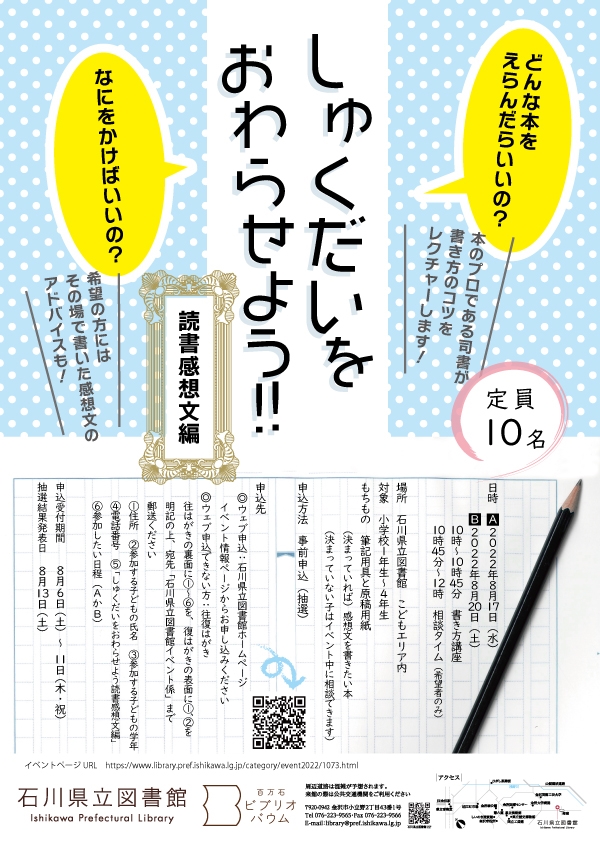 どんな本を
えらんだらいいの？
本のプロである司書が
書き方のコツを
レクチャーします！
しゅくだいを
おわらせよう!!
読書感想文編
なにをかけばいいの？
希望の方には
その場で書いた感想文の
アドバイスも！
定員
10名
日時
A 2022年8月17日（水）
B 2022年8月20日（土）
10時～10時45分 書き方講座
10時45分～12時 相談タイム（希望者のみ）
場所 石川県立図書館 こどもエリア内
対象 小学校1年生～4年生
もちもの 筆記用具と原稿用紙
（決まっていれば）感想文を書きたい本
（決まっていない子はイベント中に相談できます）
申込方法 事前申込（抽選）
申込先
◎ウェブ申込：石川県立図書館ホームページ
イベント情報ページからお申し込みください
◎ウェブ申込できない方：往復はがき
往はがきの裏面に①～⑥を、復はがきの表面に①、②を
明記の上、宛先「石川県立図書館イベント係」まで
郵送ください
①住所 ②参加する子どもの氏名 ③参加する子どもの学年
④電話番号 ⑤「しゅくだいをおわらせよう読書感想文編」
⑥参加したい日程（AかB）
申込受付期間 8月6日（土）～11日（木・祝）
抽選結果発表日 8月13日（土）
イベントページURL https://www.library.pref.ishikawa.lg.jp/category/event2022/1073.html
石川県立図書館
Ishikawa Prefectural Library
百万石
ビブリオ
バウム
周辺道路は混雑が予想されます。
来館の際は公共交通機関をご利用ください
〒920-0942 金沢市小立野2丁目43番1号
Tel 076-223-9565・Fax 076-223-9566
E-mail:library@pref.ishikawa.lg.jp
アクセス
石川県立図書館
Ishikawa Prefectural Library